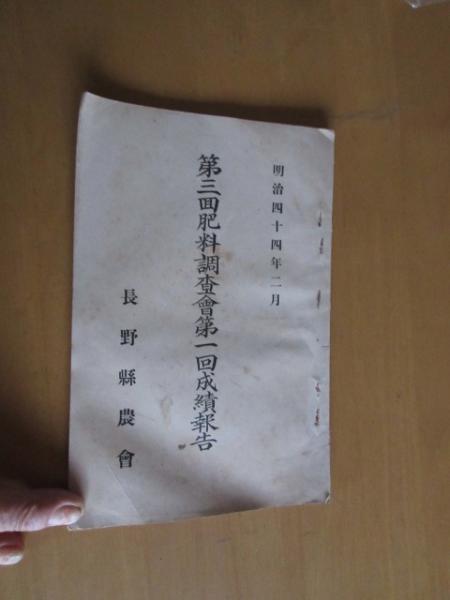 明治四十四年二月
第三回肥料調査會第一回成績報告
長野縣農會